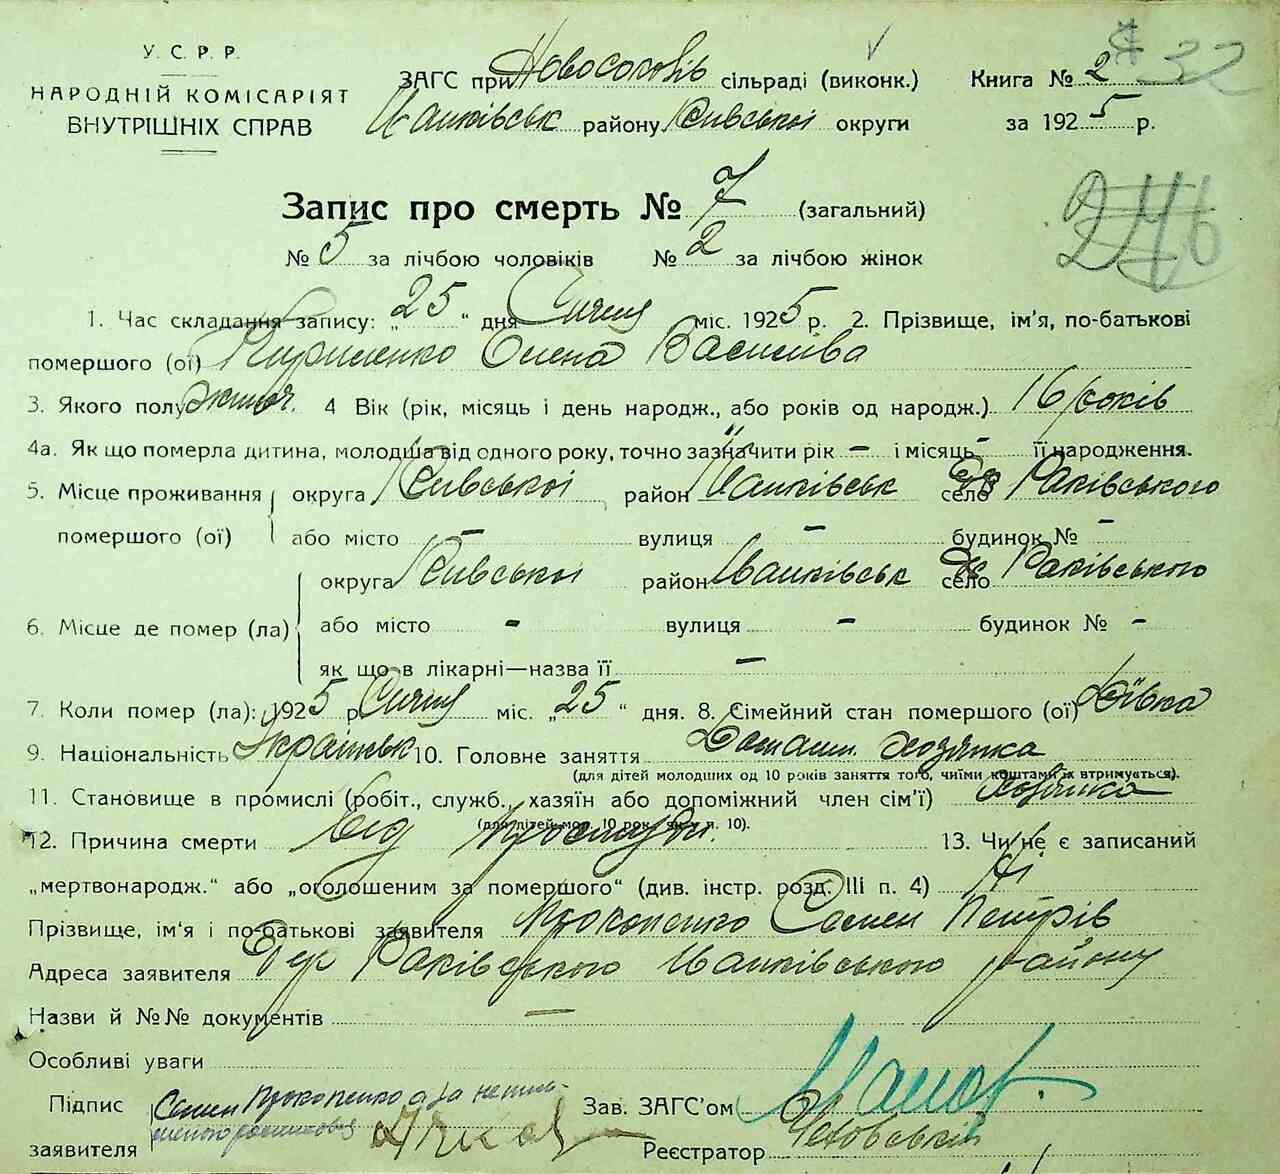 У. С. Р. Р.
НАРОДНІЙ КОМІСАРІЯТ
ВНУТРІШНІХ СПРАВ
ЗАГС при сільраді (виконк.)
району Київської округи
Книга № 2
32
за 1925 р.
Запис про смерть № 7 (загальний)
246
№ 5 за лічбою чоловіків № 2 за лічбою жінок
1. Час складання запису: „25“ дня Січня міс. 1925 р. 2. Прізвище, ім'я, по-батькові
помершого (ої) Кириленко Олена Василівa
3. Якого полу жіноч. 4 Вік (рік, місяць і день народж., або років од народж.) 16 років
4а. Як що померла дитина, молодша від одного року, точно зазначити рік – і місяць – її народження.
5. Місце проживання округа Київської район село Раківського
помершого (ої) або місто – вулиця – будинок № –
округа Київської район село Раківського
6. Місце де помер (ла) або місто - вулиця – будинок № –
як що в лікарні—назва її –
7. Коли помер (ла): 1925 р Січня міс. „25“ дня. 8. Сімейний стан помершого (ої) Дівка
9. Національність Українськ 10. Головне заняття Домашн. хозяйка
(для дітей молодших од 10 років заняття того, чиїми коштами їх втримується).
11. Становище в промислі (робіт., служб., хазяїн або допоміжний член сім'ї) хозяйка
(для дітей мол. 10 рок. як у п. 10).
12. Причина смерти від простуди. 13. Чи не є записаний
„мертвонародж.“ або „оголошеним за помершого“ (див. інстр. розд. III п. 4) Ні
Прізвище, ім'я і по-батькові заявителя Прокопенко Семен Петрів
Адреса заявителя Дер Раківського району
Назви й №№ документів —
Особливі уваги
Підпис Семен Прокопенко а за
заявителя
Зав. ЗАГС'ом
Реєстратор